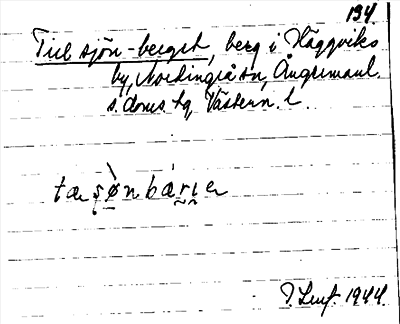 134
Till sjön-berget, berg i Häggviks
by, Nordingrå sn, Ångermanl.
s. doms. tg, Västern. l.
tæ ʂø̀nbárɪe
1944.